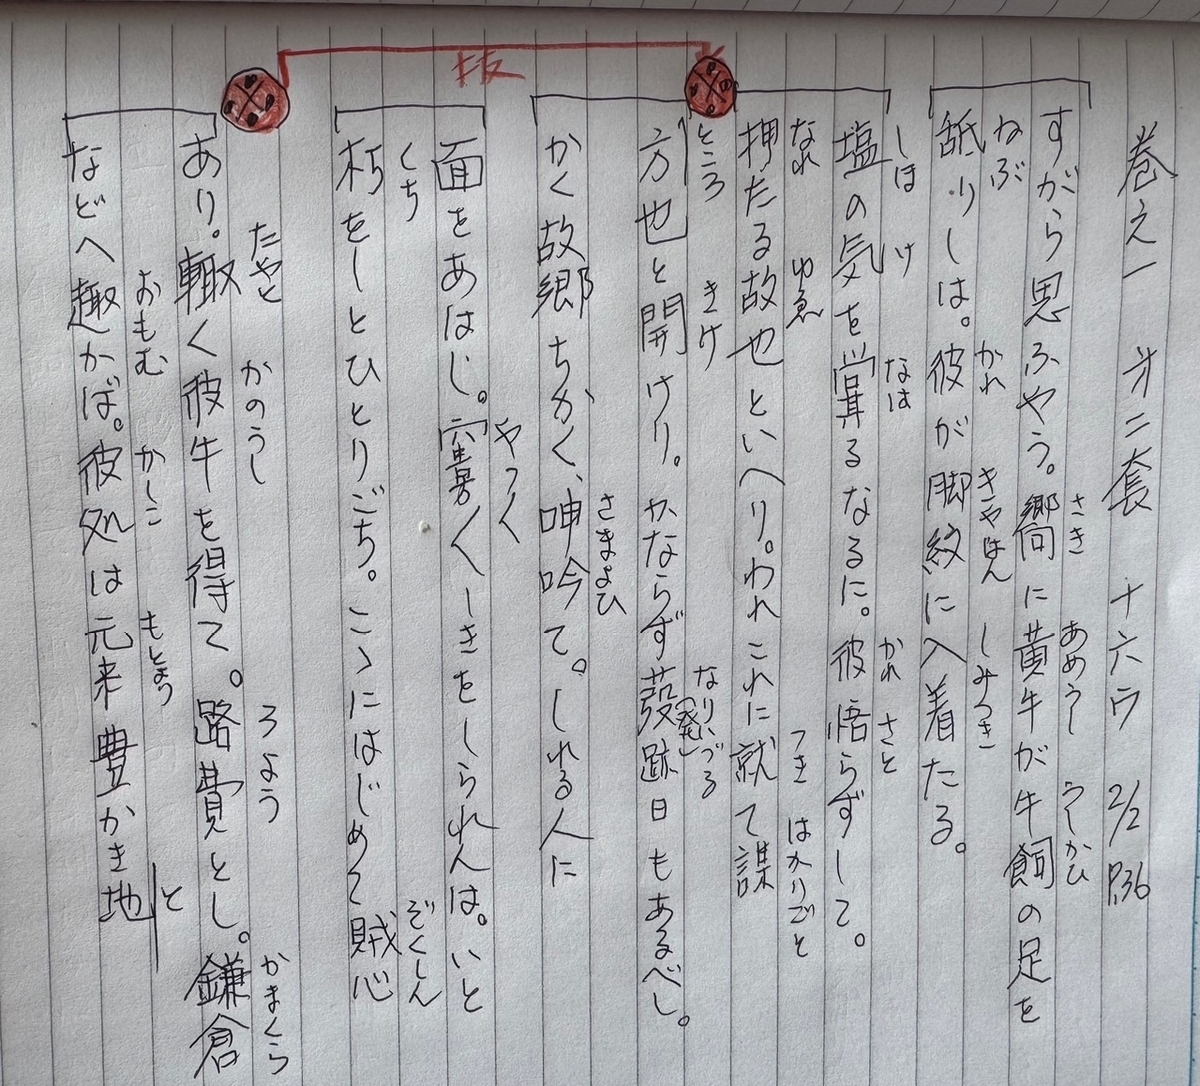 巻之一 才二套 十六ウ 2/2 P.36
すがら思ふやう。嚮に黄牛が牛飼の足を
さき あめうし うしかひ
舐りしは。彼が脚絞に入着たる。
ねぶ かれ きやはん しみつき
塩の気を嘗るなるに。彼悟らずして。
しほ け なは かれ さと
押たる故也といへり。われこれに就て謀
なれ ゆゑ つき はかりごと
方也と開けり。かならず發跡日もあるべし。
ところ きけ なりいづる (発)
かく故郷ちかく、呻吟て。しれる人に
さまよひ
面をあはじ。窶々しきをしられんは。いと
やつ〱
朽をしとひとりごち。こゝにはじめて賊心
くち ぞくしん
抜
あり。輙く彼牛を得て。路費とし。鎌倉
たやと かのうし ろよう かまくら
などへ趣かば。彼処は元来豊かき地
おもむ かしこ もとより と